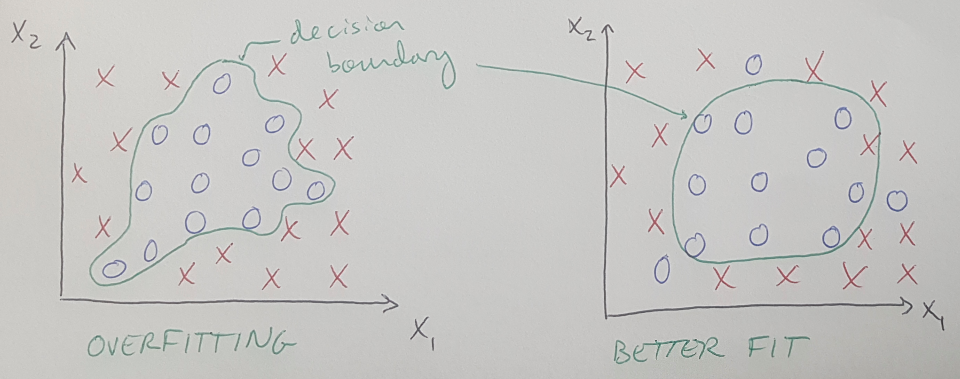 X2
decision
boundary
X1
OVERFITTING
X2
X1
BETTER FIT